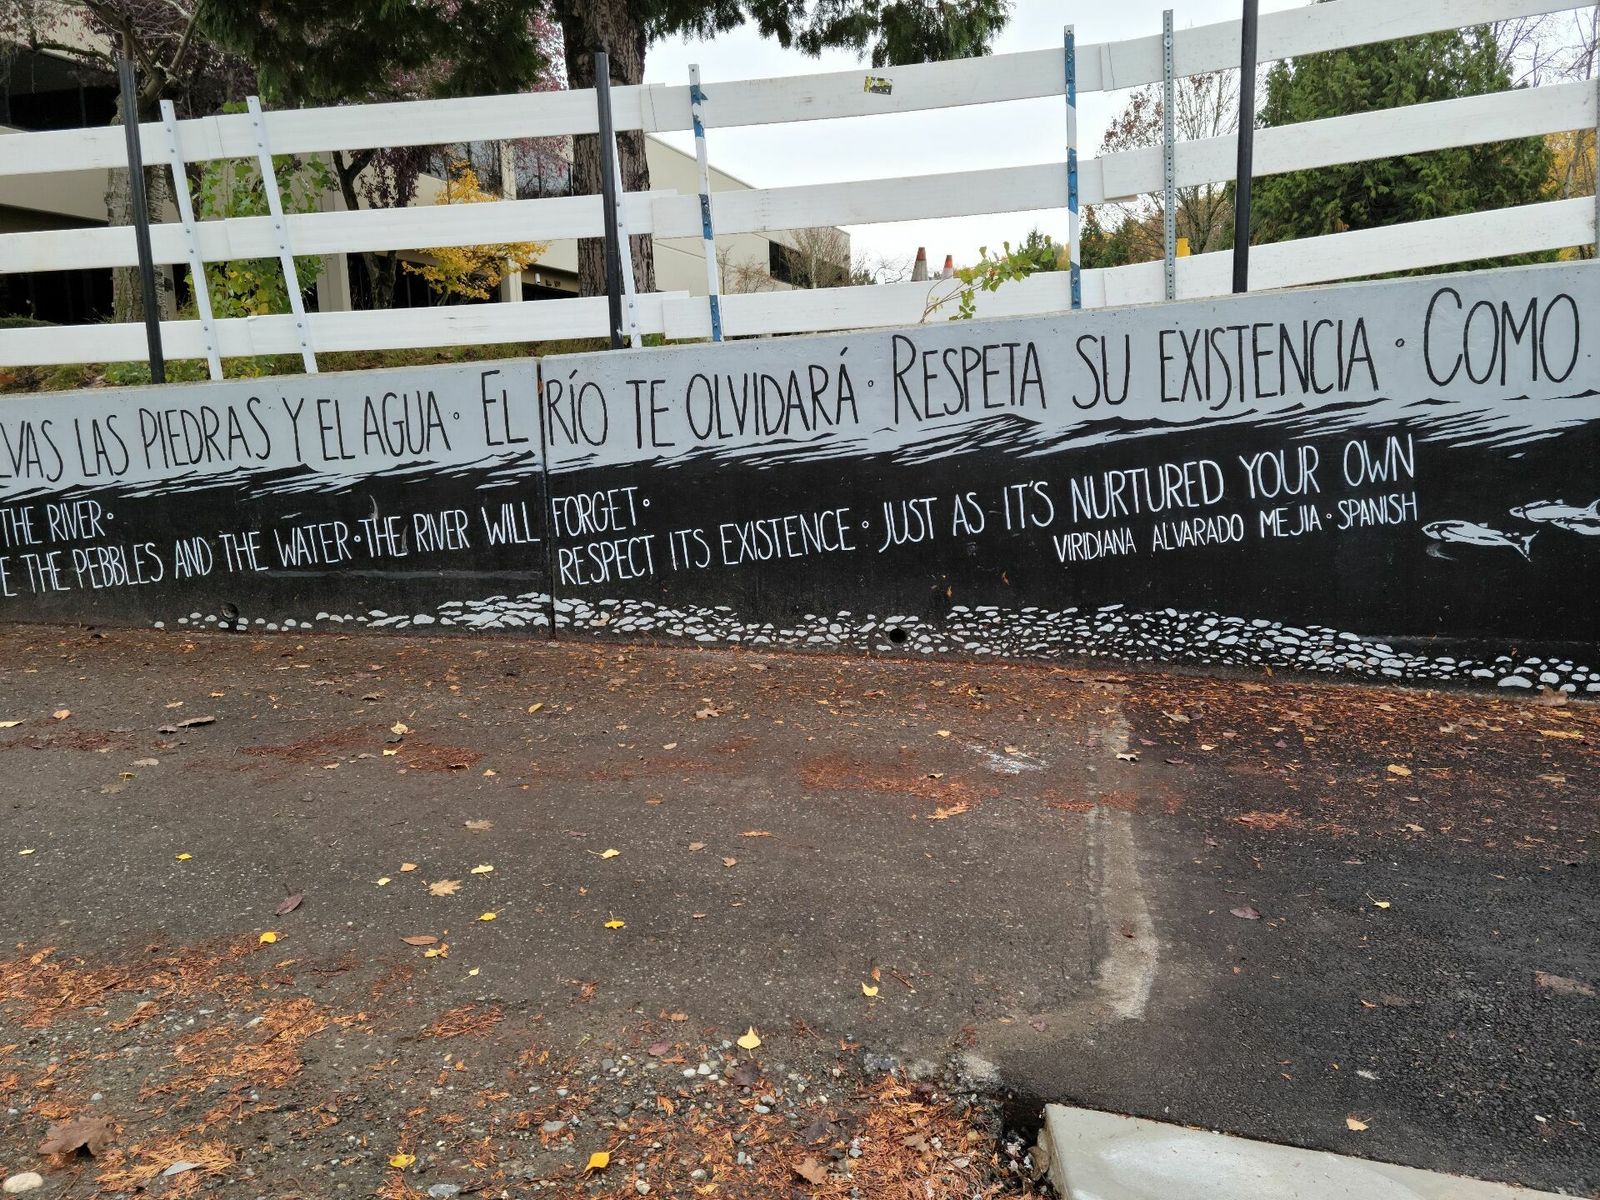 LVAS LAS PIEDRAS Y EL AGUA • EL RÍO TE OLVIDARÁ • RESPETA SU EXISTENCIA • COMO
THE RIVER •
THE PEBBLES AND THE WATER • THE RIVER WILL FORGET •
RESPECT ITS EXISTENCE • JUST AS IT'S NURTURED YOUR OWN
VIRIDIANA ALVARADO MEJIA • SPANISH